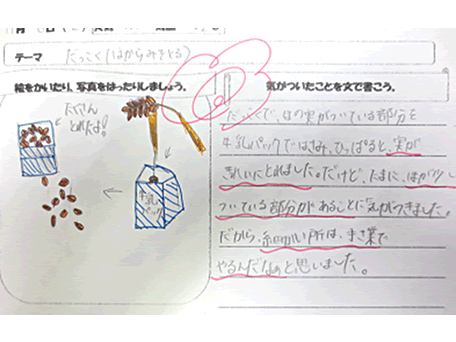 テーマ だっこく(はからみをとる)
絵をかいたり、写真をはったりしましょう。
気がついたことを文で書こう。
たくさん
とれたよ!
牛乳
パック
だっこくで、ほの実がついている部分を
牛乳パックではさみ、ひっぱると、実が
きれいにとれました。だけど、たまに、はが少し
ついている部分があることに気がつきました。
だから、細かい所は、手さ業で
やるんだなあと思いました。